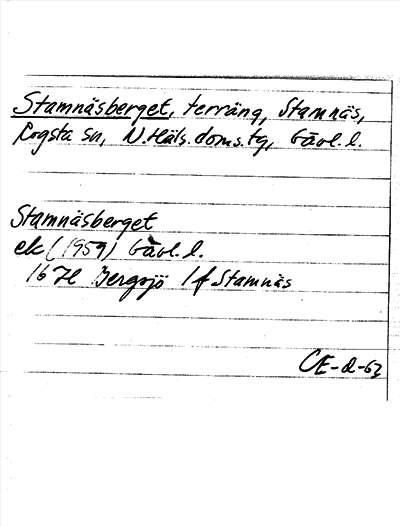 Stamnäsberget, terräng, Stamnäs,
Rogsta sn, N. Häls. doms. tg, Gävl. l.
Stamnäsberget
ek (1959) Gävl. l.
16 H Bergsjö 1 f Stamnäs
CE-Q-62